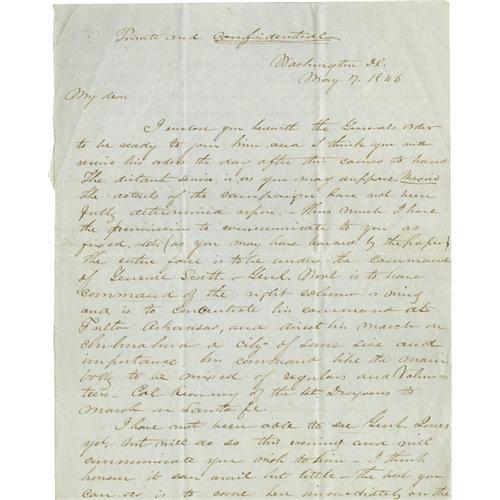 Private and Confidential
Washington
May 17. 1846
My dear
I enclose you herewith the Generals order
to be ready to join him and I think you will
receive his orders the day after this comes to hand
The distant service is as you may suppose Mexico
The details of the campaign have not been
fully determined upon. - Thus much I have
the permission to communicate to you as
fixed, (as you may have learned by the papers)
the entire force is to be under the command
of General Scott - Genl. Wool is to have
command of the right column or wing
and is to concentrate his command at
Fulton Arkansas, and direct his march on
Chihuahua a city of some size and
importance his command like the main
body to be mixed of regulars and Volun-
teers - Col Kearney of the 1st Dragoons to
march on Santa fe
I have not been able to see Genl. Jones
yet but will do so this evening and will
communicate you wish to him - I think
however it can avail but little - the best you
can do is to come here immediately on the